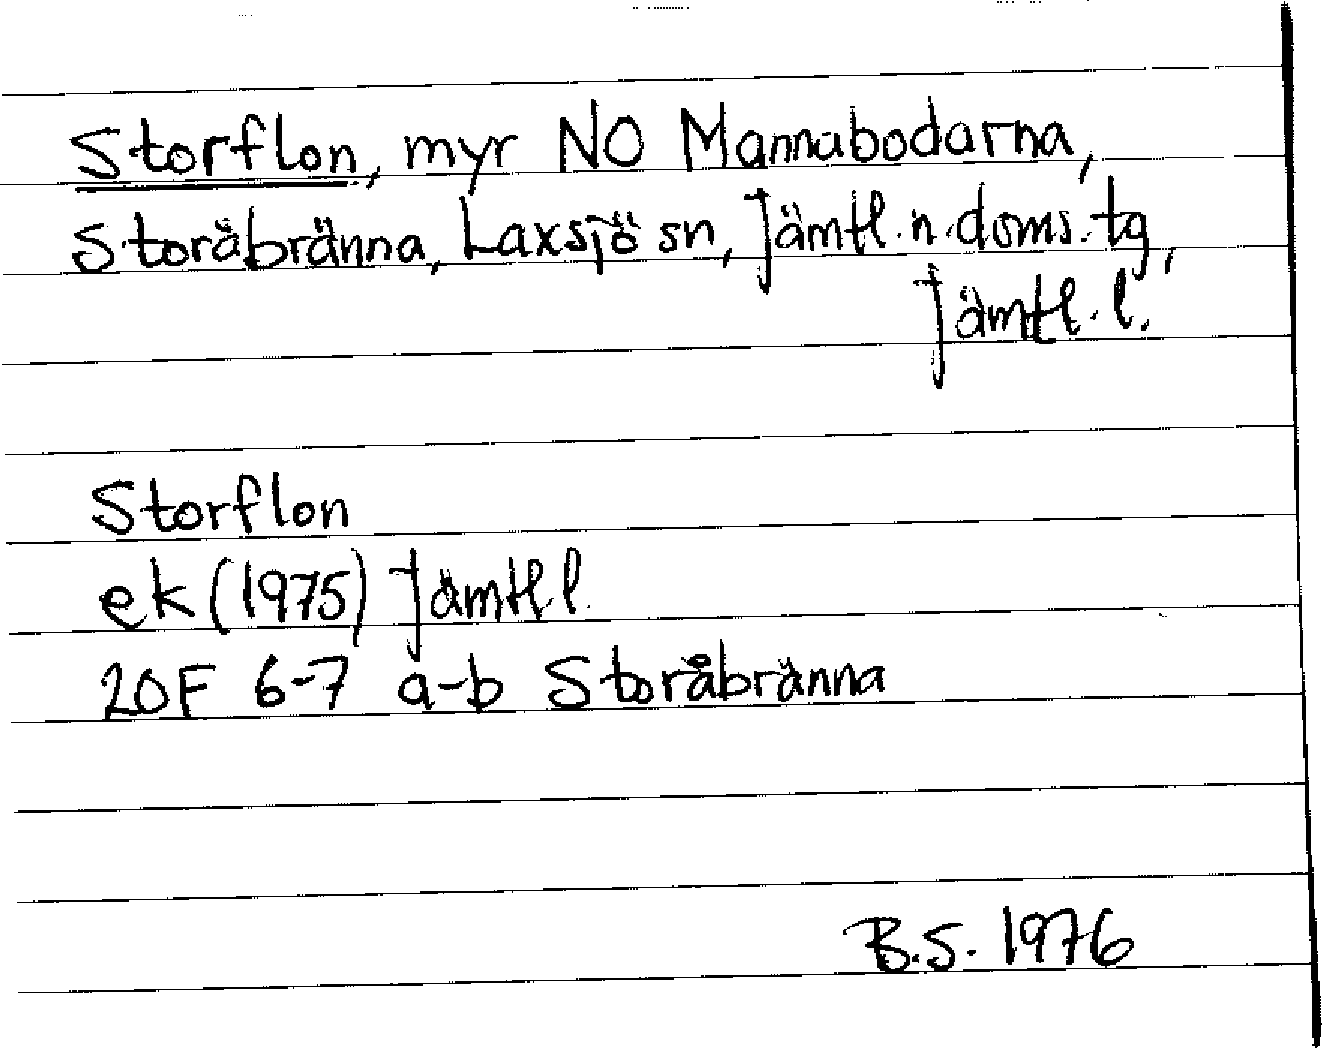 Storflon, myr NO Mannabodarna,
Storåbränna, Laxsjö sn, Jämtl. n. doms. tg,
Jämtl. l.
Storflon
ek (1975) Jämtl. l.
20F 6-7 a-b Storåbränna
B.S. 1976